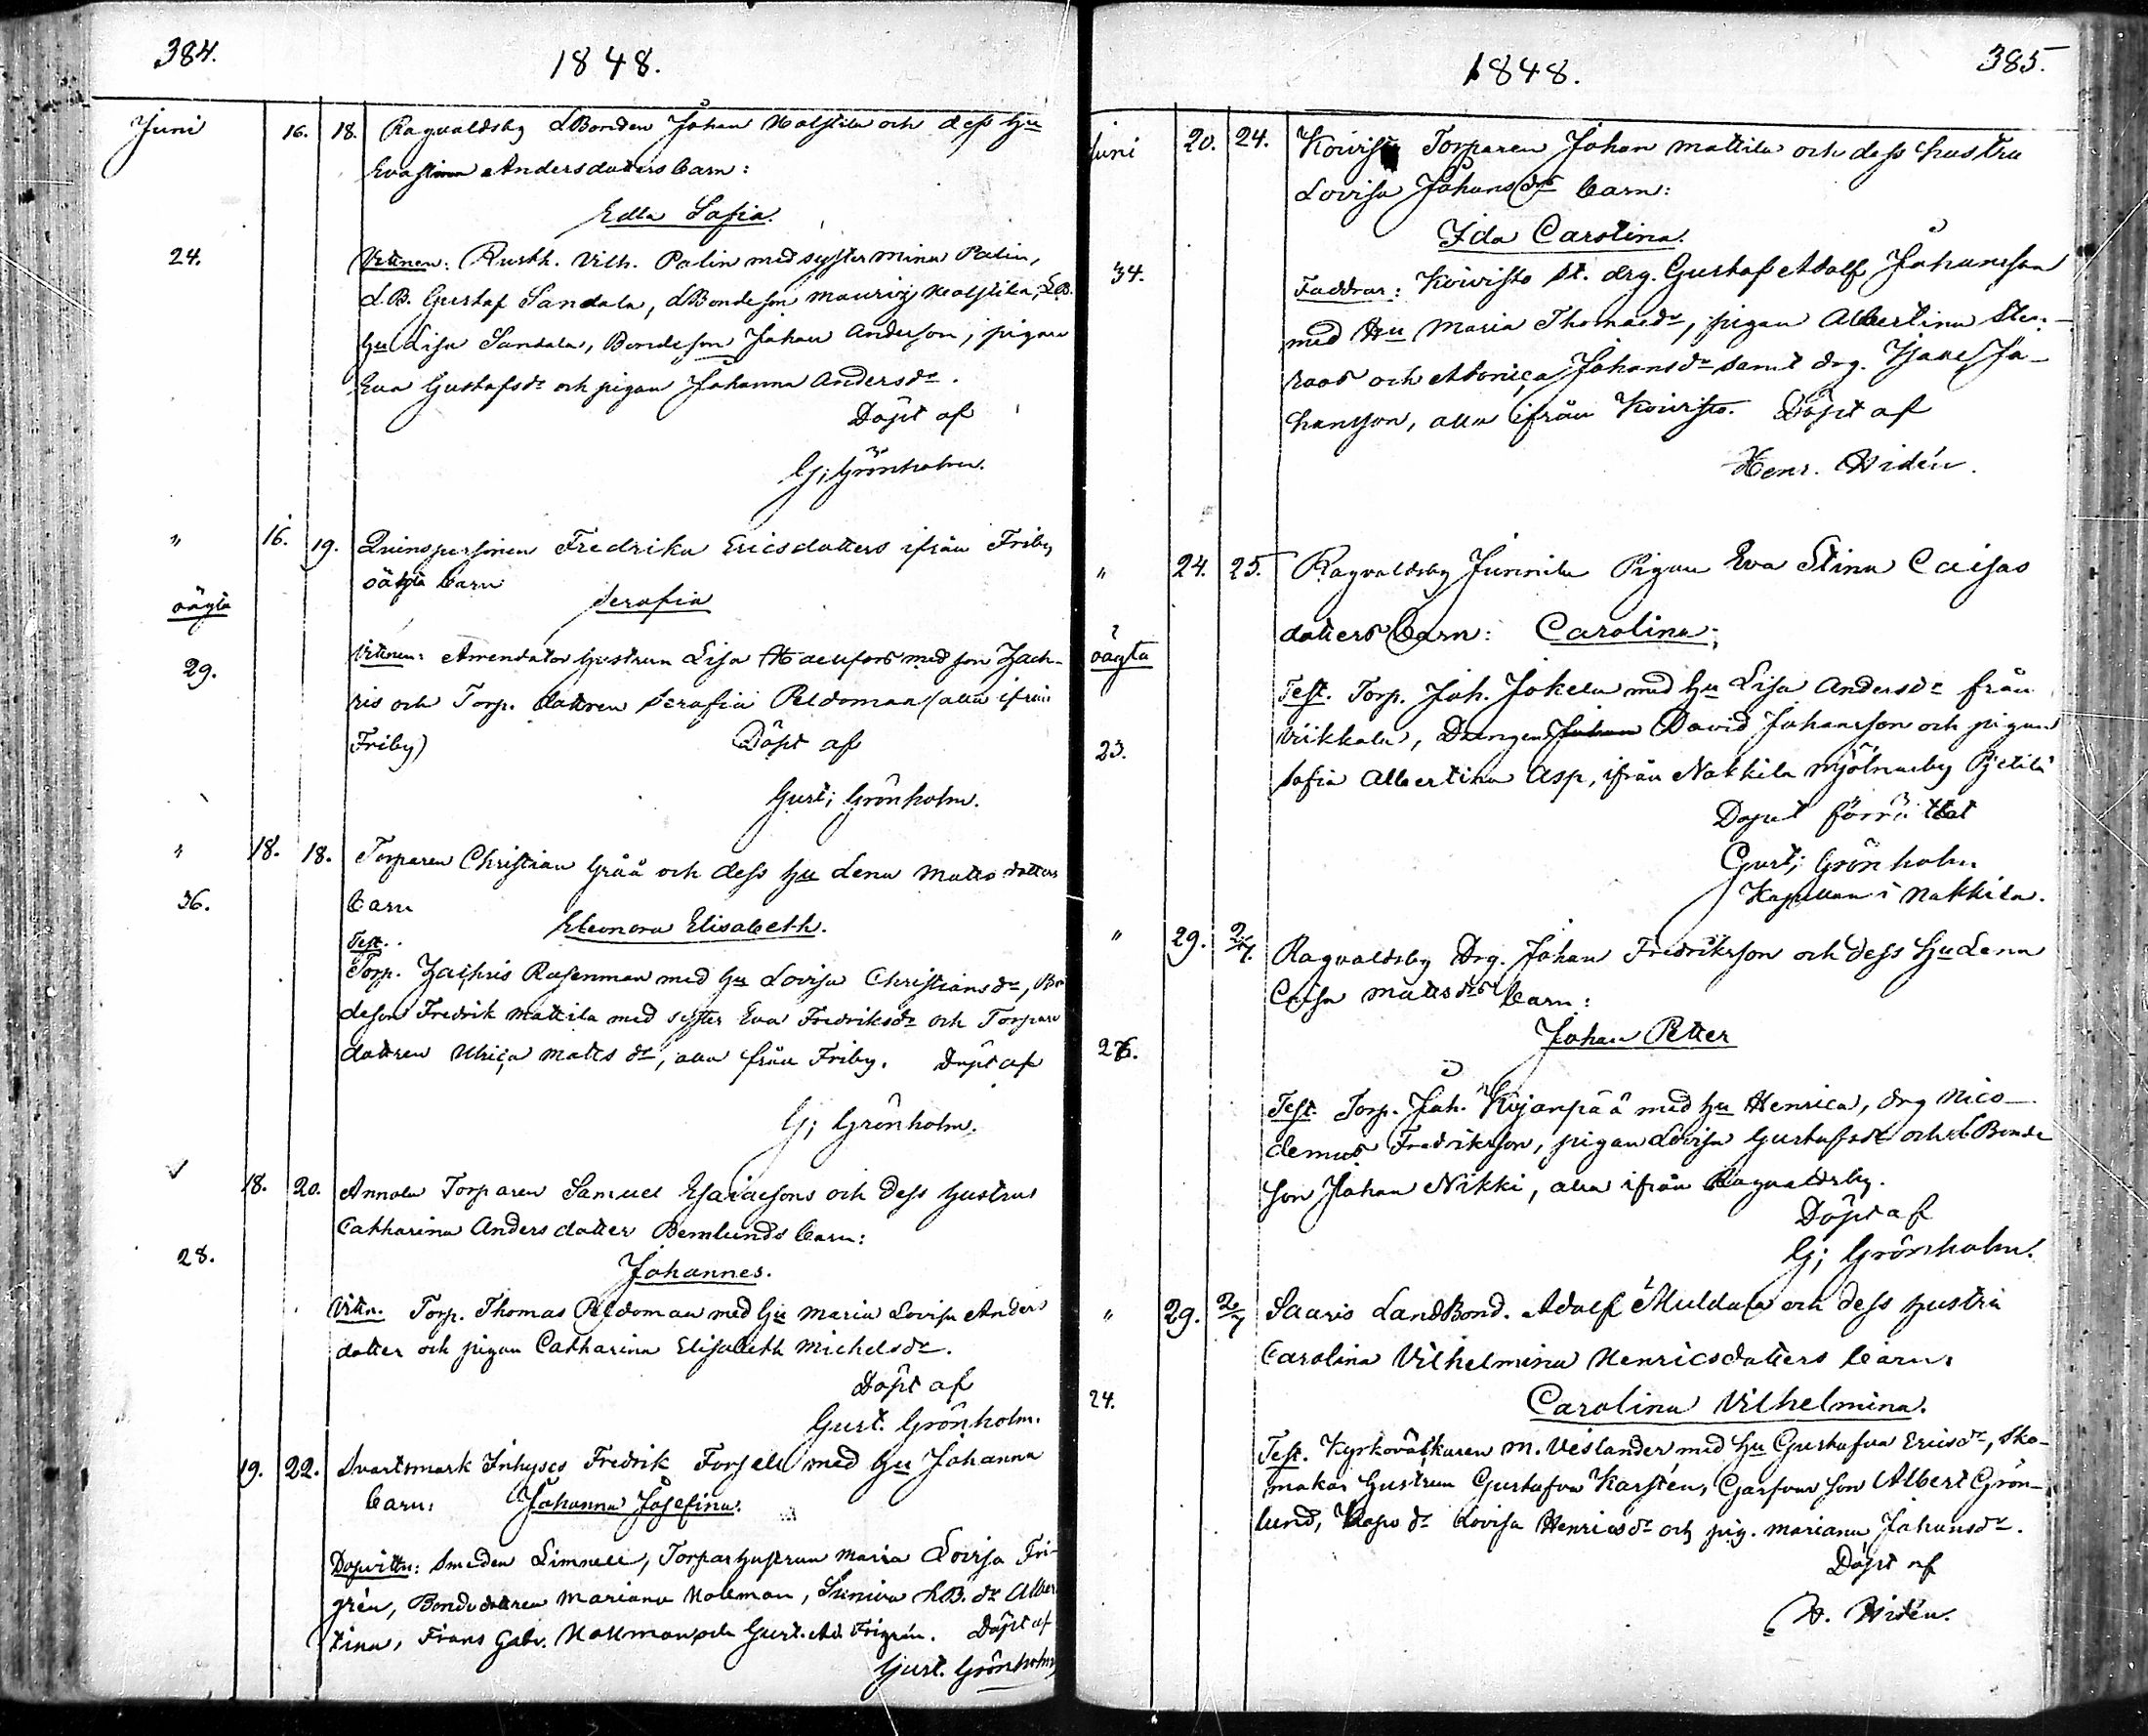 384.
1848.
Juni 16. 18. Ragvaldsby LBonden Johan Holstila och dess Hu
Evastina Andersdotters barn:
Edla Sofia.
24. Vittnen: Rusth. Vilh. Palin med syster Mina Palin,
L.B. Gustaf Sandala, LBondeson Mauriz Holstila, LB.
Hu Lisa Sandala, Bondeson Johan Anderson, pigan
Eva Gustafsdr och pigan Johanna Andersdr.
Döpt af
G; Grönholm.
" 16. 19. Qvinspersonen Fredrika Ericsdotters ifrån Friby
oägta barn
oägta Serafia
29. Vittnen: Arrendator Hustrun Lisa med son Zach-
ris och Torp. dottren Serafia Peldoman (alla ifrån
Friby) Döpt af
Gust; Grönholm.
" 18. 18. Torparen Christian Gråå och dess Hu Lena Mattsdotters
36. barn
Eleonora Elisabeth.
Test.
Torp. Zachris Rosenman med Hu Lovisa Christiansdr, Bo
deson Fredrik Mattila med syster Eva Fredriksdr och Torpare
dottren Ulrica Mattsdr, alla från Friby. Döpt af
G; Grönholm.
18. 20. Annola Torparen Samuel Esaiaesons och dess Hustrus
Catharina Andersdotter Bemlunds barn:
28. Johannes.
Vittn. Torp. Thomas Peldoman med Hu Maria Lovisa Anders
dotter och pigan Catharina Elisabeth Michelsdr.
Döpt af
Gust. Grönholm.
19. 22. Svartsmark Inhyses Fredrik Forsell med Hu Johanna
barn: Johanna Josefina.
Dopvittn: Smeden Limnell, Torparhustrun Maria Lovisa Fri-
grén, Bondedottren Mariana Nolleman, LB. dr Alber
tina, Frans Gabr. Nolleman och Gust. Ad. Frigrén. Döpt af
Gust. Grönholm
1848.
385.
Juni 20. 24. Koivisto Torparen Johan Mattila och dess hustru
Lovisa Johansdrs barn:
Ida Carolina.
34. Faddrar: Koivisto St. drg. Gustaf Adolf Johansson
med Hu Maria Thomaedr, pigan Albertina Sten-
roos och Johansdr samt drg. Isak Jo-
hansson, alla ifrån Koivisto. Döpt af
Henr. Hidén.
" 24. 25. Ragvaldsby Junnila Pigan Eva Stina Caisas
dotters barn: Carolina;
oägta
Test. Torp. Joh. Jokela med Hu Lisa Andersdr från
23. Viikkala, Drengen Johan David Johansson och pigan
Sofia Albertina Asp, ifrån Nakkila Mjölnarby
Dopet förrättat
Gust; Grönholm
Kapellan i Nakkila.
" 29. 2/7. Ragvaldsby Drg. Johan Fredriksson och dess Hu Lena
Caisa Mattsdrs barn:
26. Johan Petter
Test. Torp. Joh. Kojanpää med Hu Henrica, drg Nico-
demus Fredriksson, pigan Lovisa Gustafsdr och LBonde
son Johan Nikki, alla ifrån Ragvaldsby.
Döpt af
G; Grönholm.
" 29. 2/7 Saaris LandBond. Adolf Muldola och dess hustru
Carolina Vilhelmina Henricsdotters barn:
24. Carolina Vilhelmina.
Test. Kyrkoväktaren M. Veslander med Hu Gustafva Ericsdr, Sko-
makar Hustrun Gustafva Karstén, Garfvar son Albert Grön-
lund, dr Lovisa Henricsdr och pig. Mariana Johansdr.
Döpt af
H. Hidén.